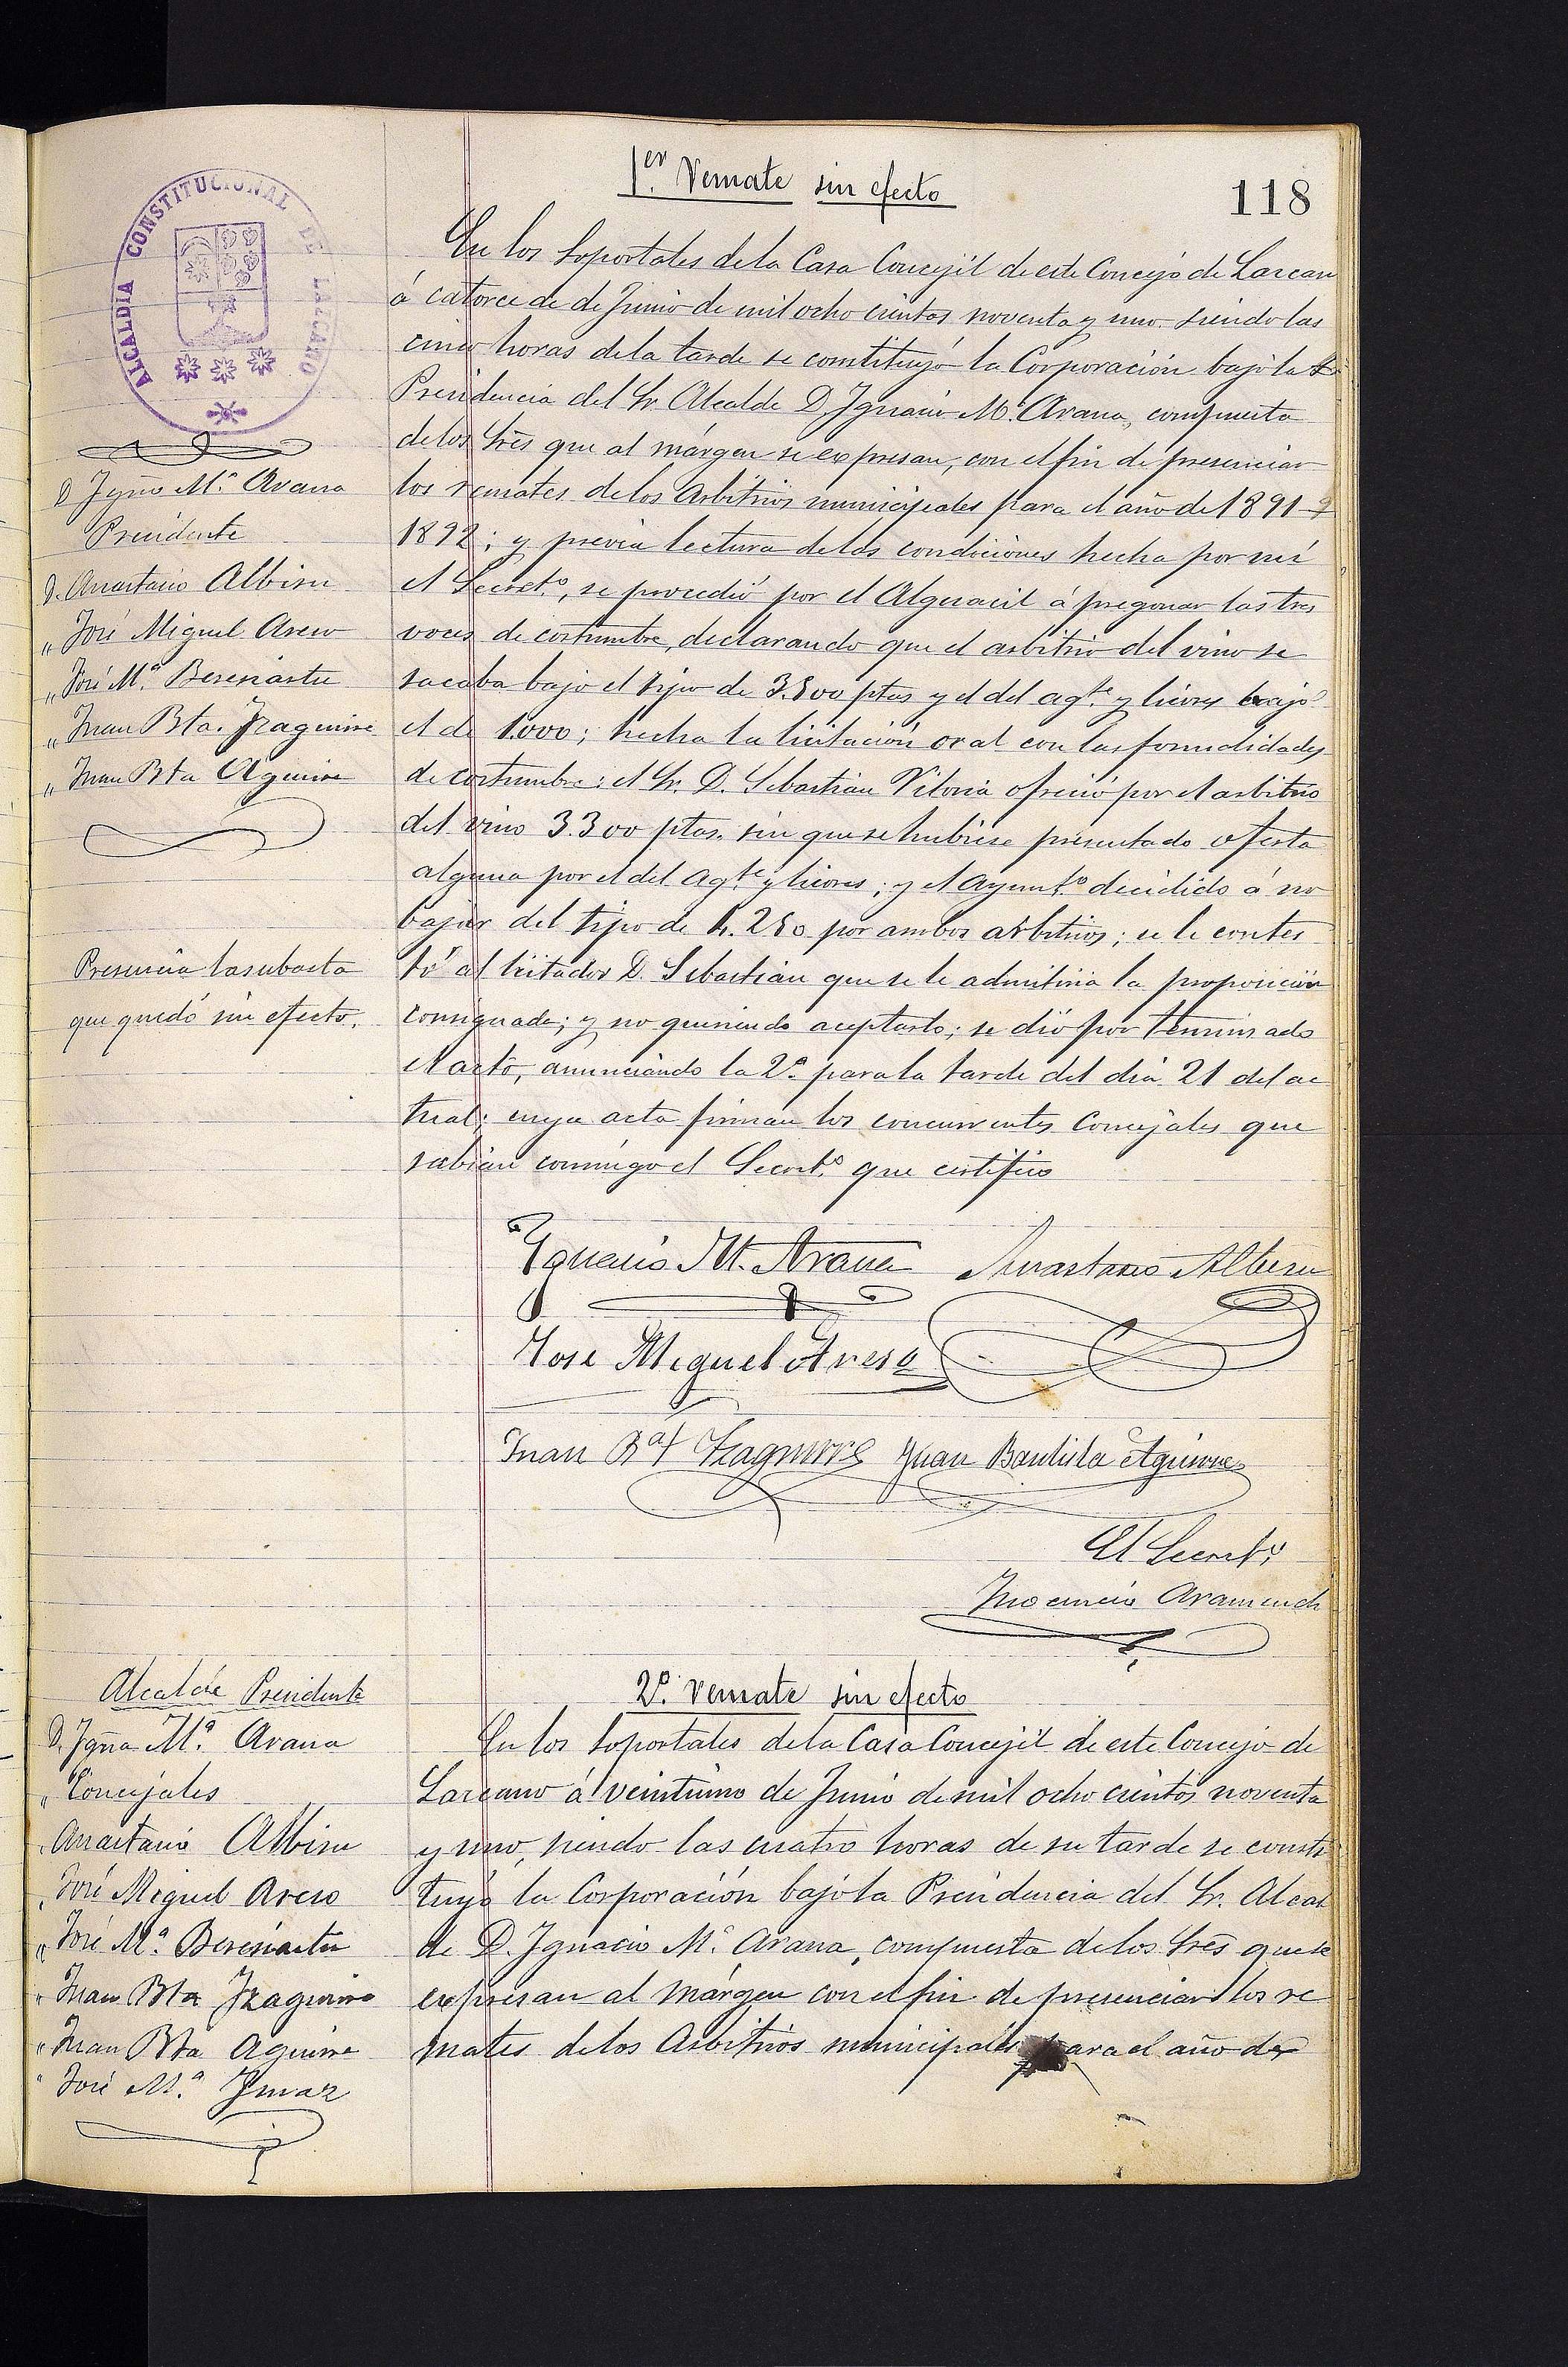 118
ALCALDIA CONSTITUCIONAL DE LAZCANO
1.er Remate sin efecto
En los Soportales de la Casa Concejil de este Concejo de Lazcano
á catorce de de Junio de mil ocho cientos noventa y uno siendo las
cinco horas de la tarde se constituyó la Corporación bajo la
Presidencia del Sr. Alcalde D. Ignacio M.ª Arana, compuesta
de los Sres que al márgen se expresan, con el fin de presenciar
los remates de los Arbitrios municipales para el año de 1891 á
1892; y previa lectura de las condiciones hecha por mi
el Secret.º, se procedió por el Alguacil á pregonar las tres
voces de costumbre, declarando que el arbitrio del vino se
sacaba bajo el tipo de 3.500 ptas y el del ag.te y licores bajo
el de 1.000; hecha la licitación oral con las formalidades
de costumbre: el Sr. D. Sebastian Vitoria ofreció por el arbitrio
del vino 3.300 ptas. sin que se hubiese presentado oferta
alguna por el del ag.te y licores; y el Ayunt.º decidido á no
bajar del tipo de 4.250 por ambos arbitrios; se le contes
tó al licitador D. Sebastián que se le admitiria la proposición
consignada; y no queriendo aceptarlo; se dió por terminado
el acto, anunciando la 2.ª para la tarde del dia 21 del ac
tual; cuya acta firman los concurrentes Concejales que
sabian conmigo el Secret.º que certifico
D Igno M.ª Arana
Presidente
D. Anastacio Albisu
" José Miguel Areso
" José M.ª Beresiartu
" Juan Bta. Izaguirre
" Juan Bta Aguirre
Presencia la subasta
que quedó sin efecto.
Ygnacio M. Arana Anastasio Albisu
Jose Miguel Areso
Juan Bat Izaguirre Juan Bautista Aguirre
El Secret.º
Inocencio Aramendi
2.º remate sin efecto
En los Soportales de la Casa Concejil de este Concejo de
Lazcano á veintiuno de Junio de mil ocho cientos noventa
y uno, siendo las cuatro horas de su tarde se consti
tuyó la Corporación bajo la Presidencia del Sr. Alcal
de D. Ignacio M.ª Arana, compuesta de los Sres que se
expresan al márgen con el fin de presenciar los re
mates de los Arbitrios municipales para el año de
Alcalde Presidente
D. Igna M.ª Arana
" Concejales
Anastacio Albisu
José Miguel Areso
" José M.ª Beresiartu
" Juan Bta Izaguirre
" Juan Bta Aguirre
" José M.ª Imaz